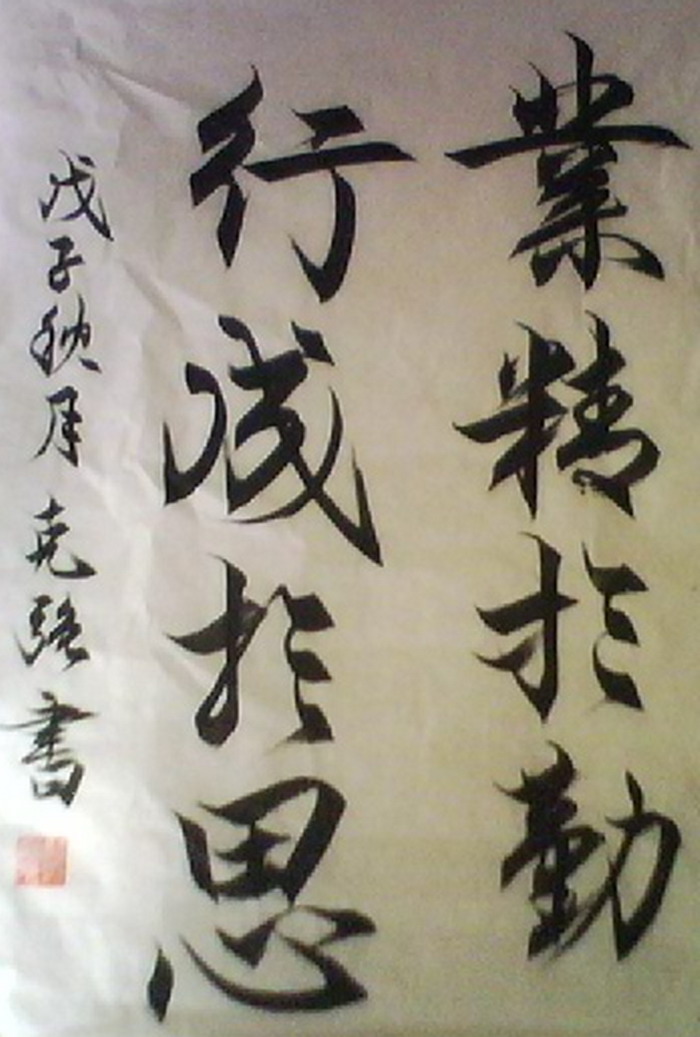 業精於勤
行成於思
戊子秋月 克強書